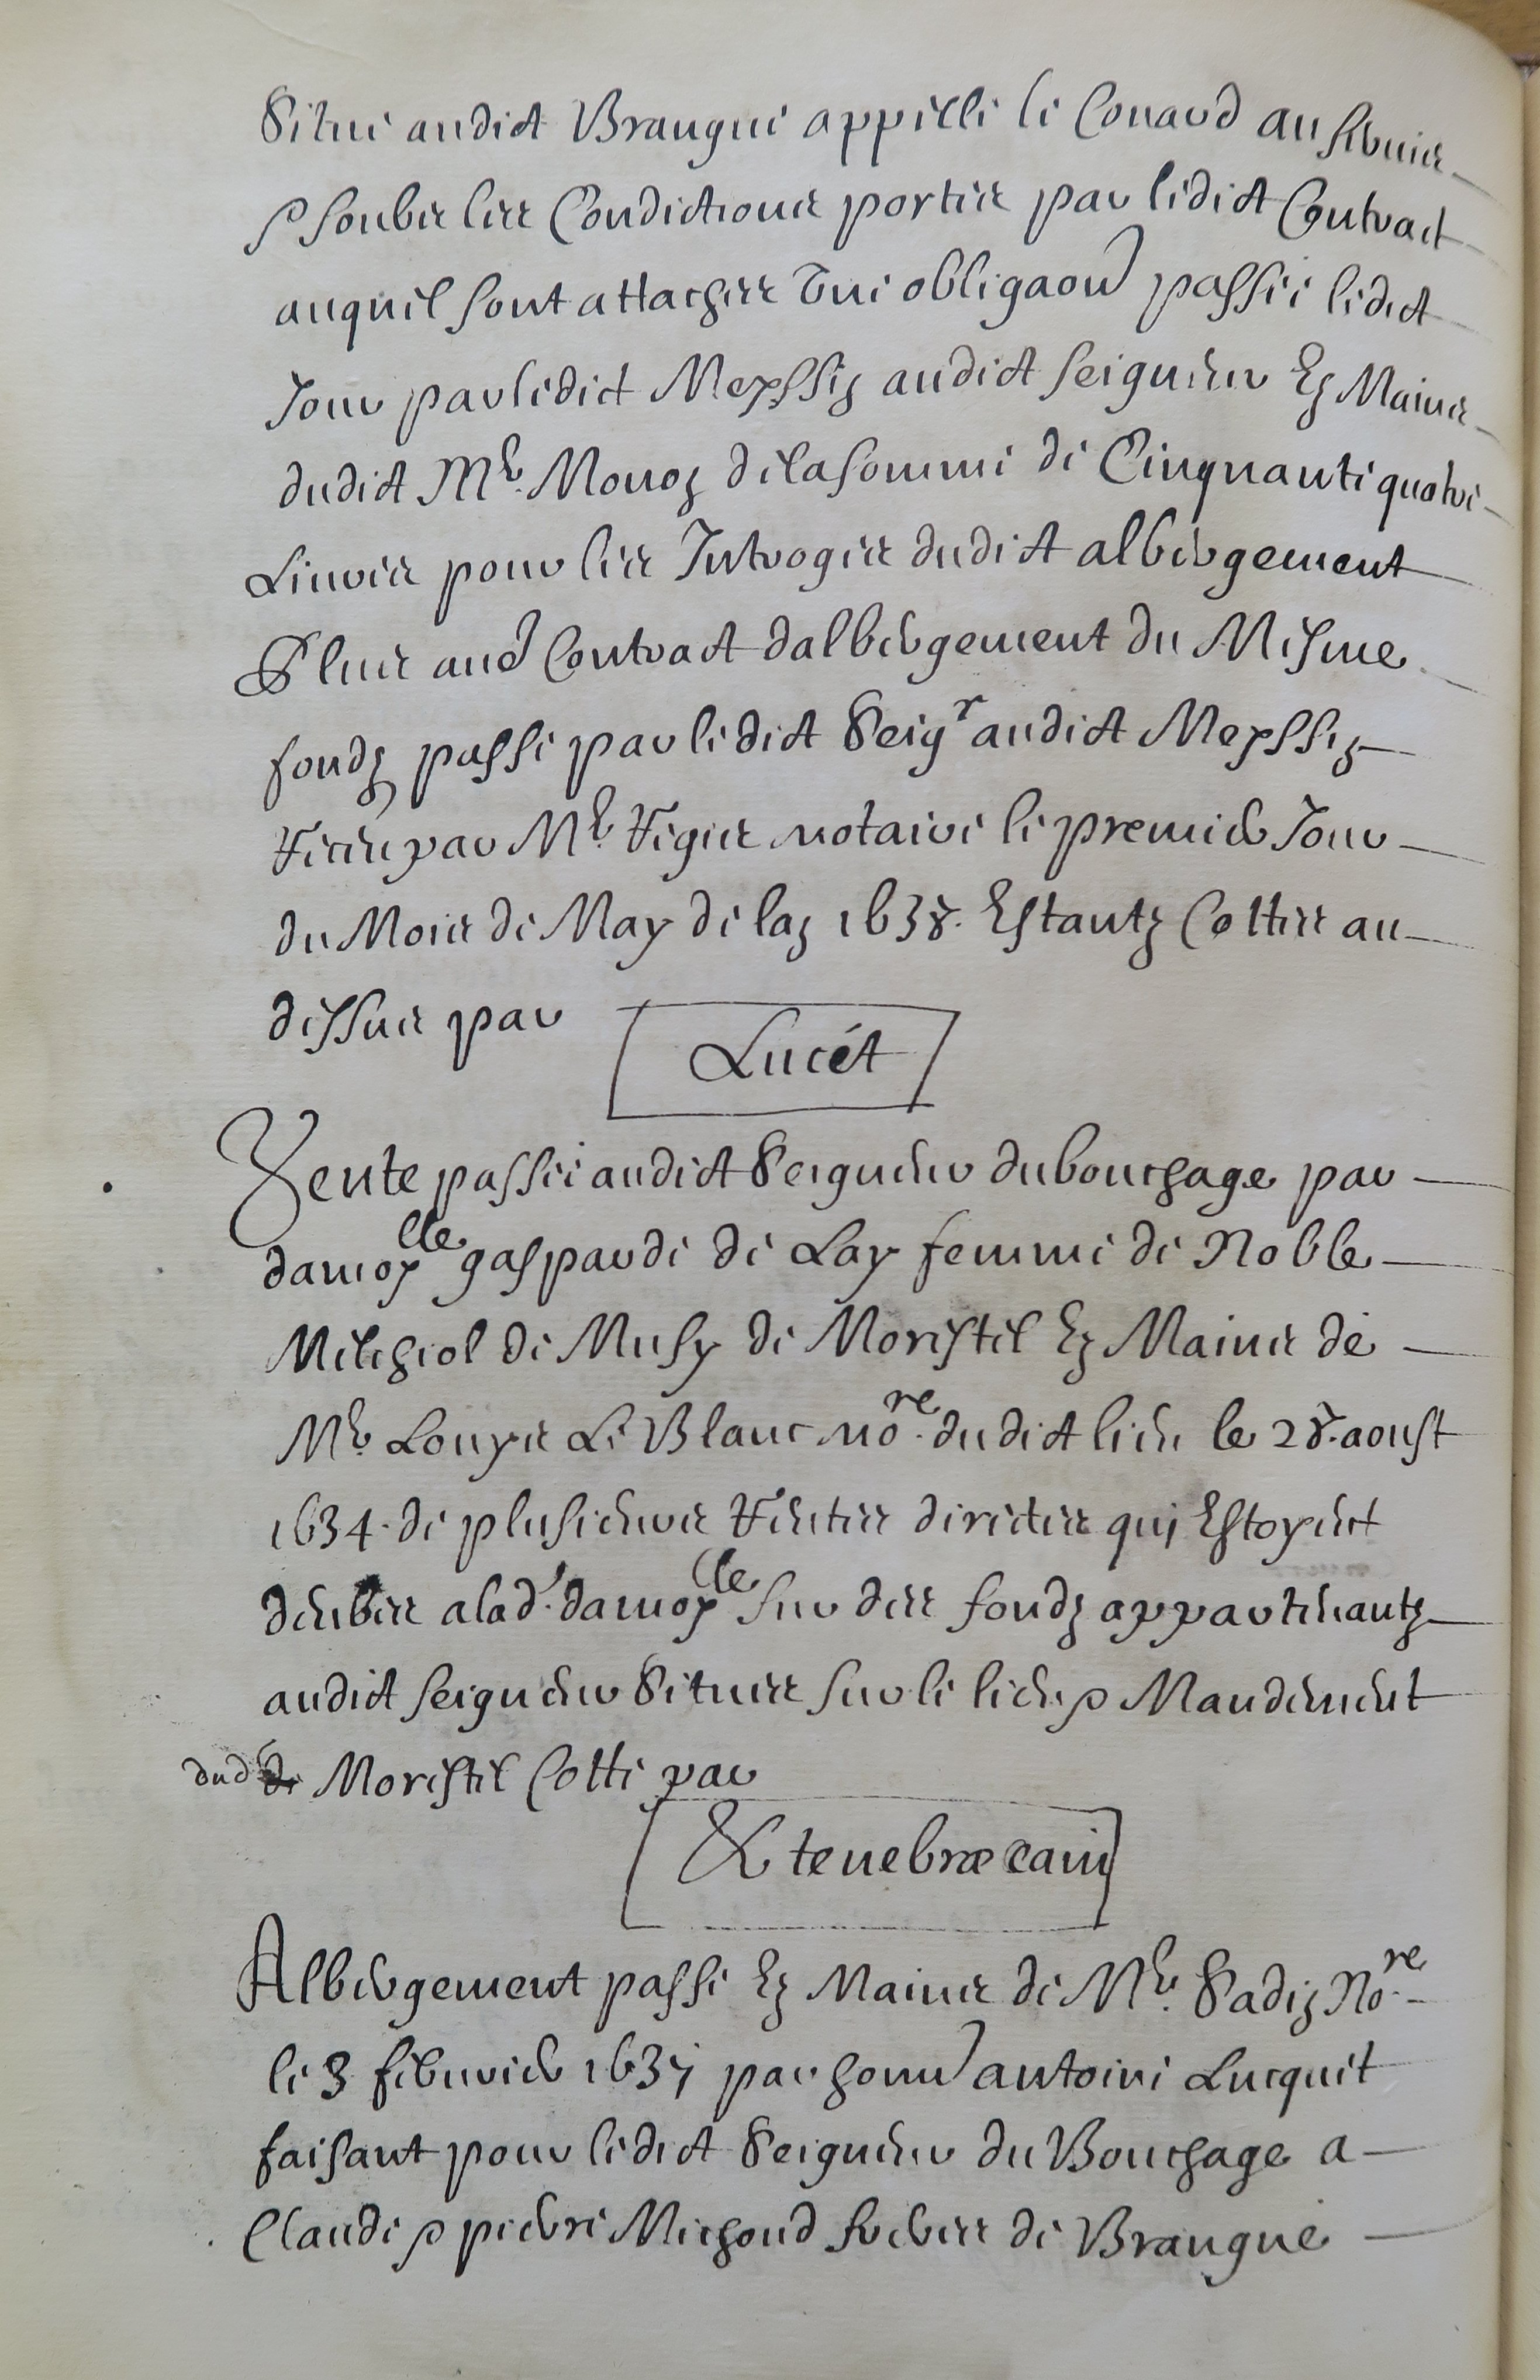 Situé audict Brangue appellé le Conard au fibvier
& soubz les Condictions portés par ledict Contract
auquel sont attachés une obligaõn passée ledict
Jour par ledict Meyssin audict seigneur Ez Mains
dudict Me. Monon de la somme de Cinquante quatre
Livres pour les Introges dudict albergement
Plus aud Contract dalbergement du Mesme
fondz passé par ledict Seigr audict Meyssin
Receu par Me. Vigne notaire le premier Jour
du Mois de May de lan 1638. Estantz Cottés au
dessus par
Lucét
Vente passée audict Seigneur du bouchage par
damoylle gasparde de Lay femme de Noble
Melchiol de Musy de Morestel Ez Mains de
Me. Louys Le Blanc nore. dudict lieu le 28. aoust
1634. de plusieurs Rentes directes qui Estoyent
deubes a lad. damoylle sur des fondz appartenantz
audict seigneur Situés sur le lieu & Mandement
dud Morestel Cotté par
& tenebræ eam
Albergement passé Ez Mains de Me. Sadin Nore.
le 3 febvrier 1637 par honn antoine Lucquet
faisant pour ledict Seigneur du Bouchage a
Claude & pierre Michoud freres de Brangue